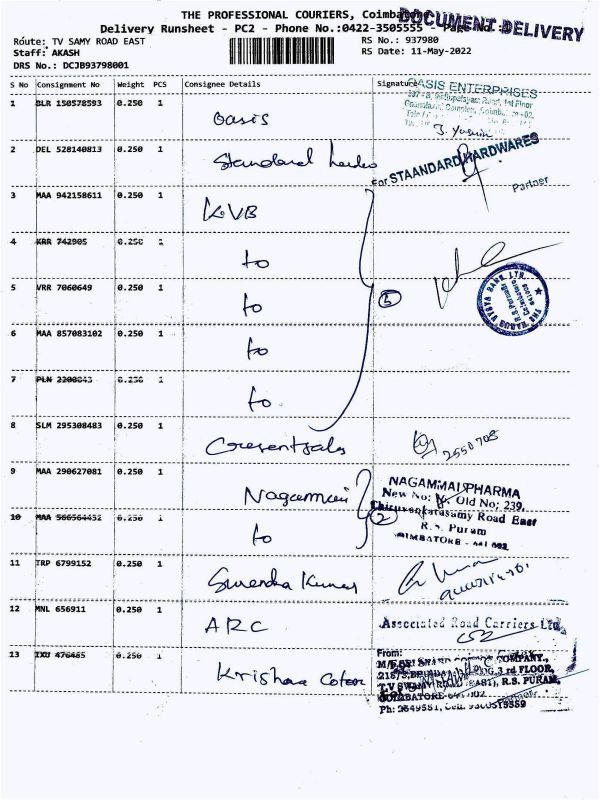 THE PROFESSIONAL COURIERS, Coimbatore
Delivery Runsheet - PC2 - Phone No.:0422-3505555 - Page No.:
DOCUMENT DELIVERY
Route: TV SAMY ROAD EAST RS No.: 937980
Staff: AKASH RS Date: 11-May-2022
DRS No.: DCJB93798001
S No Consignment No Weight PCS Consignee Details Signature
1 BLR 150578593 0.250 1 Oasis
OASIS ENTERPRISES
2 DEL 528140813 0.250 1 Standard
For STAANDARD HARDWARES
Partner
3 MAA 942158611 0.250 1 KVB
4 KRR 742905 0.250 1 to
5 VRR 7060649 0.250 1 to
5
THE KARUR VYSYA BANK LTD.
R.S.Puram
6 MAA 857083102 0.250 1 to
7 PLN 2200843 0.250 1 to
8 SLM 295308483 0.250 1
2550708
9 MAA 290627081 0.250 1 Nagammai
NAGAMMAI PHARMA
New No: Old No: 239,
Thiruvenkatasamy Road East
R.S. Puram
COIMBATORE - 641 002.
10 MAA 566564452 0.250 1 to
2
11 TRP 6799152 0.250 1 Surendra Kumar
12 MNL 656911 0.250 1 ARC
Associated Road Carriers Ltd.
13 IXU 476465 0.250 1 Krishna Coton
From:
COMPANY.,
3 rd FLOOR,
R.S. PURAM,
COIMBATORE-641 002
Partner